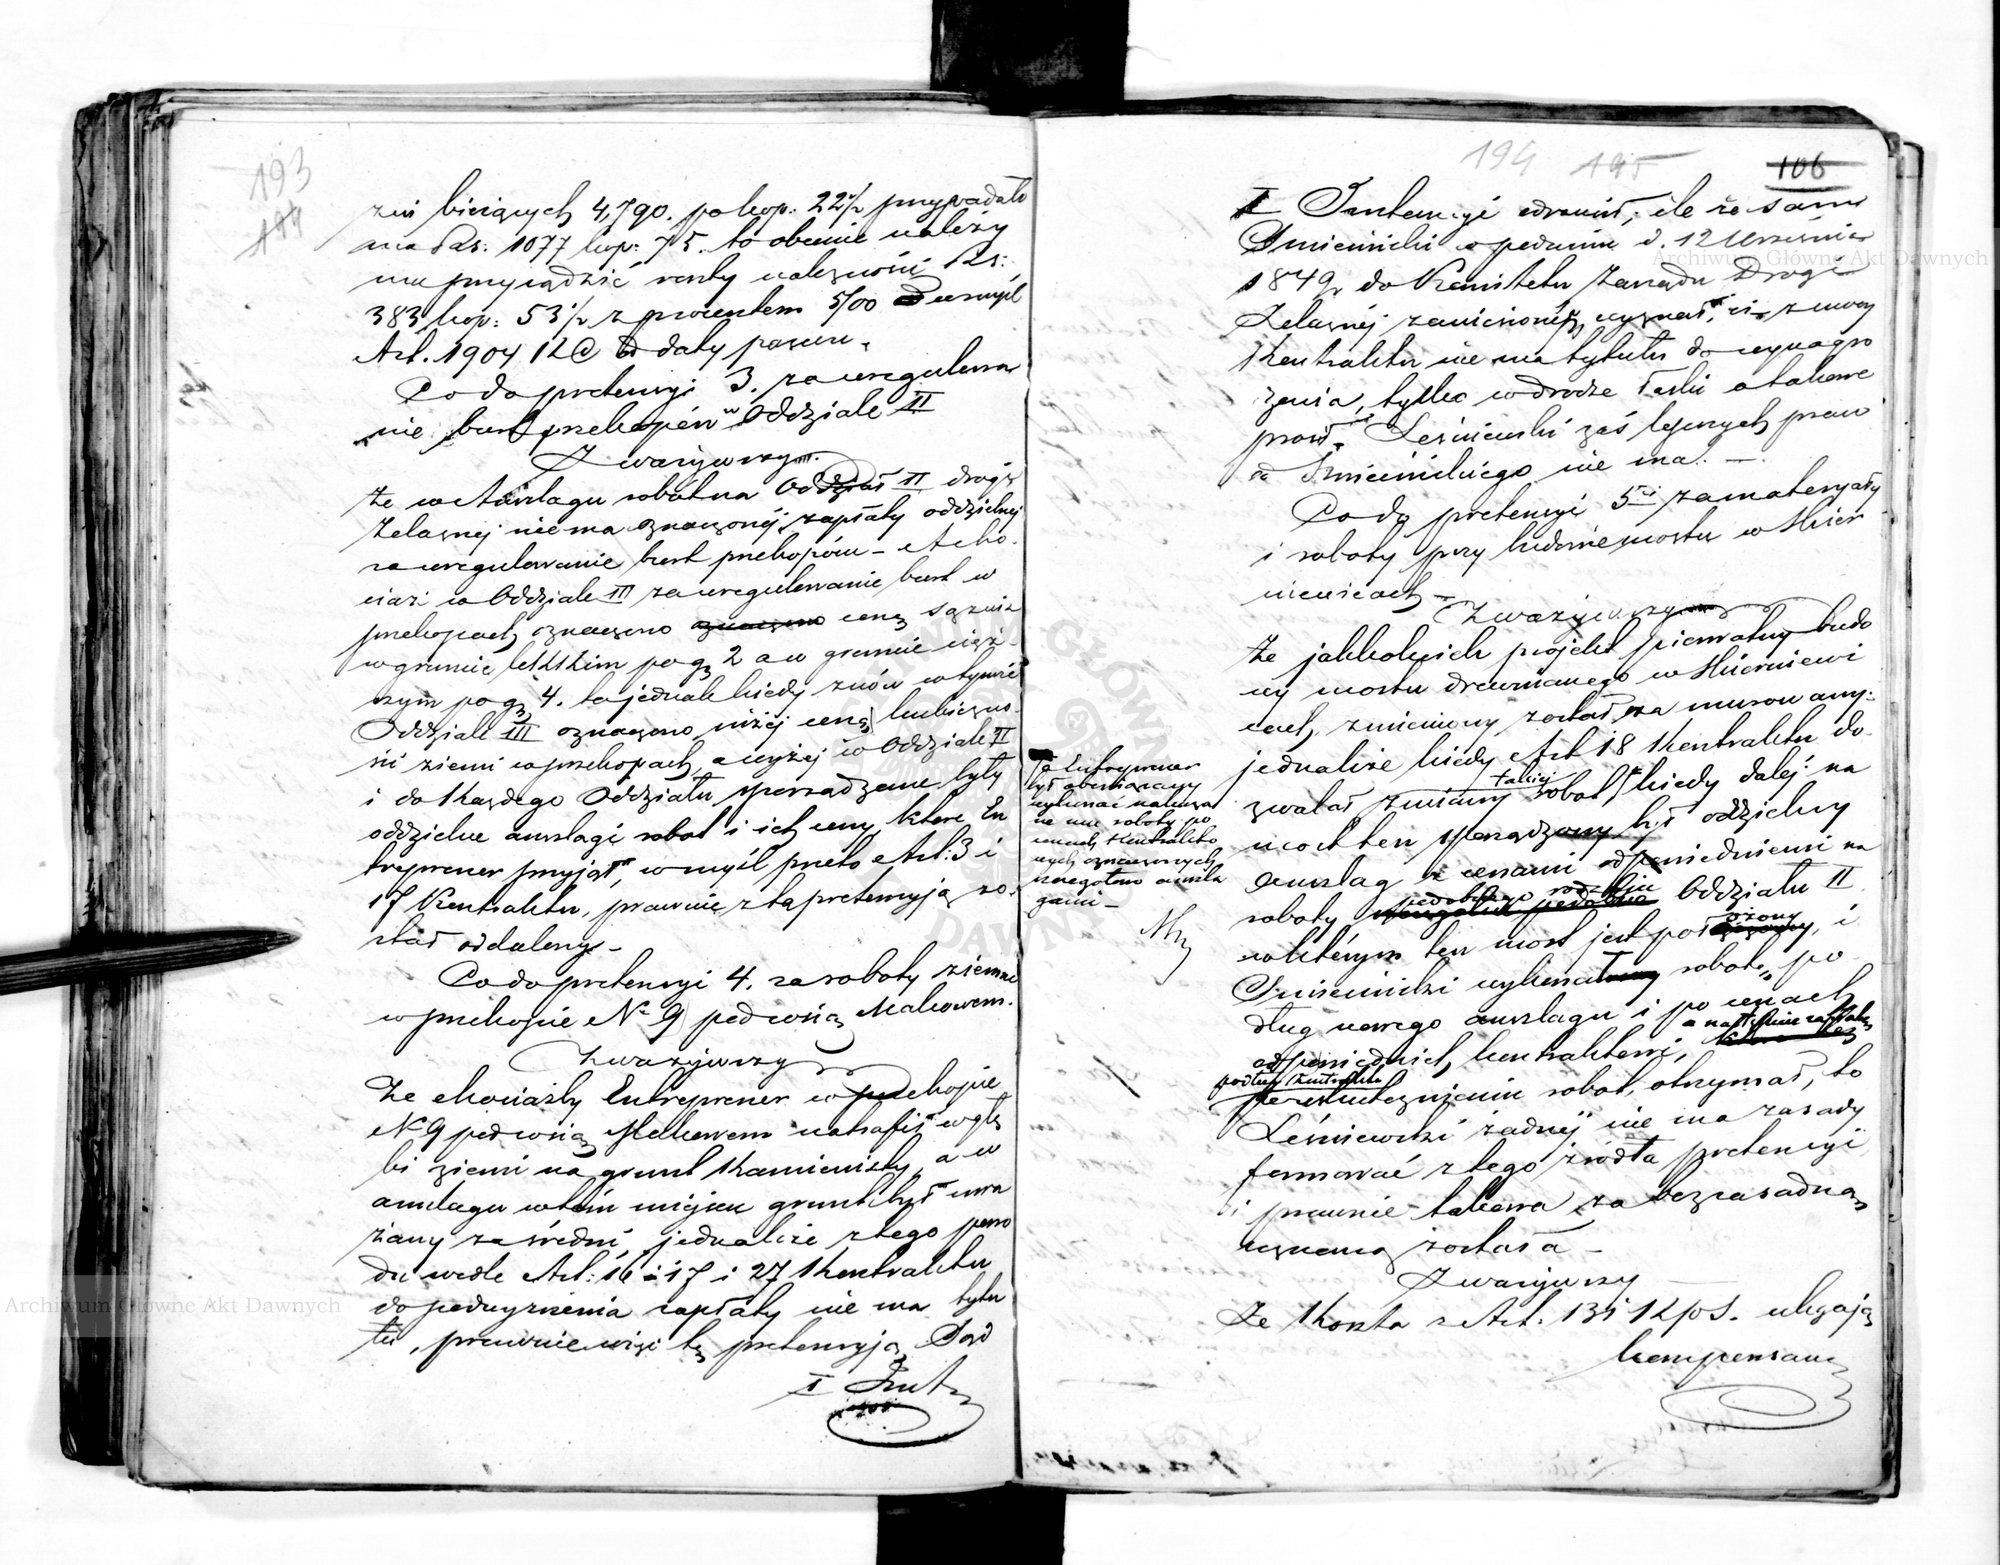 193
194
żni bieżących 4,790. po kop: 22½ przypadało
ma Rs: 1077 kop: 75. to obecnie należy
mu przysądzić resztę należności Rs:
383 kop: 53½ z procentem 5/00 w myśl
Art. 1904 KC od daty pozwu.
Co do pretensyi 3. za uregulowa
nie burt przekopów w Oddziale II
Zważywszy
że w Anszlagu robót na Oddział II drogi
Żelaznej nie ma oznaczonéj zapłaty oddzielnej
za uregulowanie burt przekopów – A cho
ciaż w Oddziale III za uregulowanie burt w
przekopach oznaczono oznaczono cenę sążnia
w gruncie lekkim po gr 2 a w gruncie cięż
szym po gr 4. to jednak kiedy znów w tymże
Oddziale III oznaczono niżej cenę kubiczno
ści ziemi w przekopach, a wyżej w Oddziale II
i do każdego Oddziału sporządzane były
oddzielne anszlagi robót i ich ceny, które En
treprener przyjął, w myśl przeto Art: 3 i
17 Kontraktu, prawnie z tą pretensyją zo
stał oddalony –
Co do pretensyi 4. za roboty ziemne
w przekopie № 9 pod wsią Makowem.
Zważywszy
Że chociażby Entreprener w przekopie
№ 9 pod wsią Makowem natrafił w głę
bi ziemi na grunt kamienisty, a w
anszlagu w tém miejscu grunt był uwa
żany za średni, jednakże z tego powo
du wedle Art: 16 i 17 i 27 Kontraktu
do podwyższenia zapłaty nie ma tytu
łu, prawnie więc tę pretensyją Sąd
I Inst.
194 195
106
I Instancyi odrzucił, ile że sam
Śmiecinski w podaniu d. 12 Września
1849 r do Komitetu Zarządu Drogi
Żelaznéj zaniesionéj, wyznał, iż z mocy
Kontraktu nie ma tytułu do wynagro
dzenia, tylko w drodze łaski o takowe
prosił. Leśniewski zaś lepszych praw
od Śmiecinskiego nie ma. –
Co do pretensyi 5éj za materyały
i roboty przy budowie mostu w Skier
niewicach –
Zważywszy
Że jakkolwiek projekt pierwotny budo
wy mostu drewnianego w Skierniewi
cach, zmieniony został na murowany:
jednakże kiedy Art 18 Kontraktu do
zwalał zmiany takiej robót, kiedy dalej na
most ten sporządzony był oddzielny
Anszlag z cenami odpowiedniemi na
roboty podobnego rodzaju Oddziału II
w którym ten most jest położony, i
Śmiecinski wykonał robotę, po
dług nowego anszlagu i po cenach
odpowiednich kontraktowi, a następnie zapłatę
podług Kontraktu
po uskutecznieniu robót, otrzymał, to
Leśniewski żadnéj nie ma zasady
formować z tego źródła pretensyi
i prawnie takowa za bezzasadną
uznaną została –
Zważywszy
Że Koszta z Art. 131 KpS. ulegają
kompensacie
a Entreprener
był obowiązany
wykonać nakaza
ne mu roboty po
cenach Kontrakto
wych oznaczonych
szczegółowo anszla
gami –